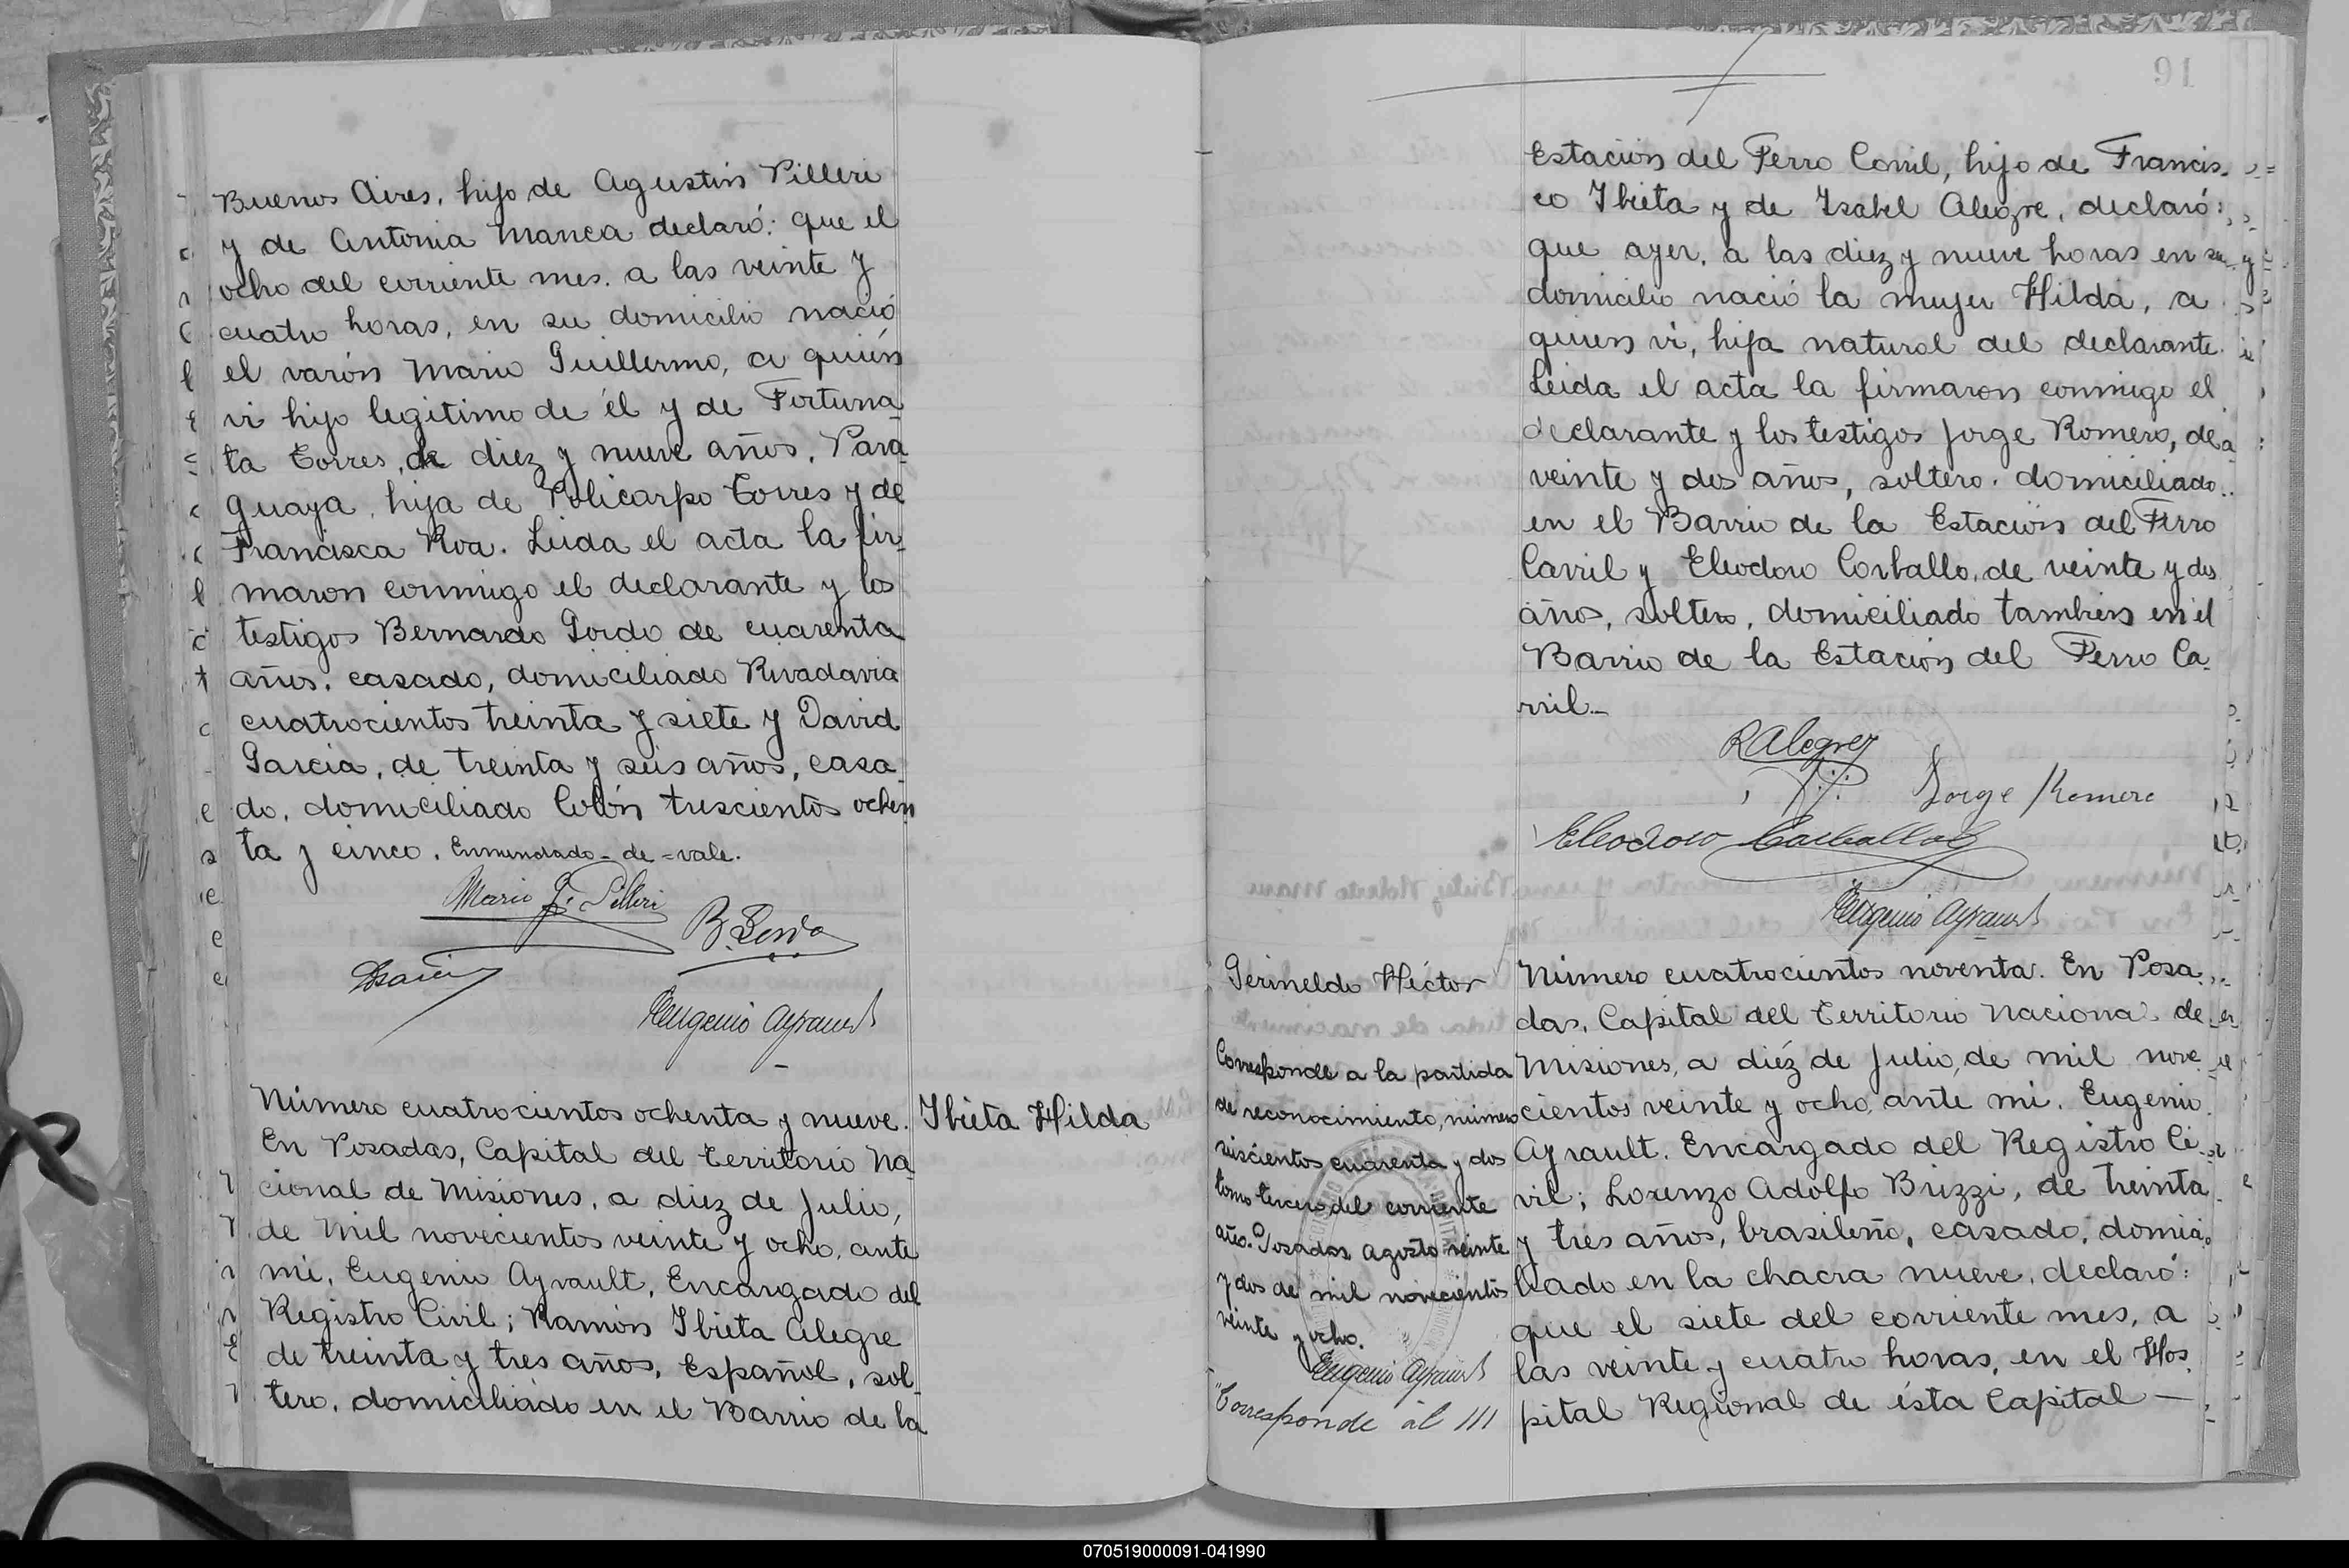 Buenos Aires, hijo de Agustin Pilleri
y de Antonia Manca declaró: que el
ocho del corriente mes. a las veinte y
cuatro horas, en su domicilio nació
el varón Mario Guillermo, a quién
vi hijo legitimo de él y de Fortuna
ta Torres, de diez y nueve años, Para
guaya, hija de Policarpo Torres y de
Francisca Roa. Leida el acta la fir
maron conmigo el declarante y los
testigos Bernardo Gordo de cuarenta
años, casado, domiciliado Rivadavia
cuatrocientos treinta y siete y David
Garcia, de treinta y seis años, casa
do, domiciliado Colón trescientos ochen
ta y cinco. Enmendado - de = vale.
Mario G. Pilleri
B. Gordo
Eugenio Ayrault
Número cuatrocientos ochenta y nueve.
Ibieta Hilda
En Posadas, Capital del Territorio Na
cional de Misiones, a diez de Julio,
de Mil novecientos veinte y ocho, ante
mi, Eugenio Ayrault, Encargado del
Registro Civil; Ramón Ibieta Alegre
de treinta y tres años, Español, sol
tero, domiciliado en el Barrio de la
91
Estación del Ferro Carril, hijo de Francis
co Ibieta y de Isabel Alegre, declaró:
que ayer, a las diez y nueve horas en su
domicilio nació la mujer Hilda, a
quien vi, hija natural del declarante.
Leida el acta la firmaron conmigo el
declarante y los testigos Jorge Romero, de
veinte y dos años, soltero, domiciliado
en el Barrio de la Estación del Ferro
Carril y Eleodoro Carballo, de veinte y dos
años, soltero, domiciliado tambien en el
Barrio de la Estación del Ferro Ca-
rril.-
R Alegre
Jorge Romero
Eleodoro Carballo
Eugenio Ayrault
Gerineldo Héctor
Corresponde a la partida
de reconocimiento, número
seiscientos cuarenta y dos
tomo tercero del corriente
año. Posadas Agosto veinte
y dos de mil novecientos
veinte y ocho.
Eugenio Ayrault
Corresponde al III
Número cuatrocientos noventa. En Posa
das, Capital del Territorio Nacional de
Misiones, a diéz de Julio, de mil nove
cientos veinte y ocho, ante mi, Eugenio
Ayrault, Encargado del Registro Ci
vil; Lorenzo Adolfo Brizzi, de treinta
y tres años, brasileño, casado, domici
liado en la chacra nueve, declaró:
que el siete del corriente mes, a
las veinte y cuatro horas, en el Hos
pital Regional de ésta Capital —
070519000091-041990